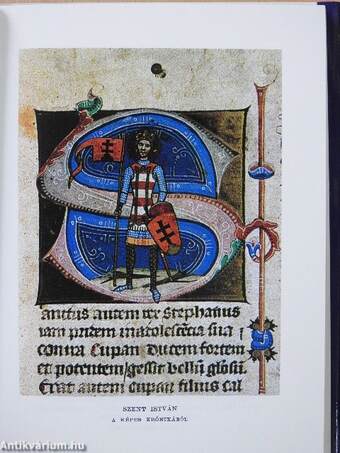 S
anctus autem rex Stephanus
iam pridem in adolescēcia sua
contra Cupan ducem fortem
et potentem gessit bellū gl'osū
Erat autem cupan filius cal
SZENT ISTVÁN
A KÉPES KRÓNIKÁBÓL
Antikvarium.hu